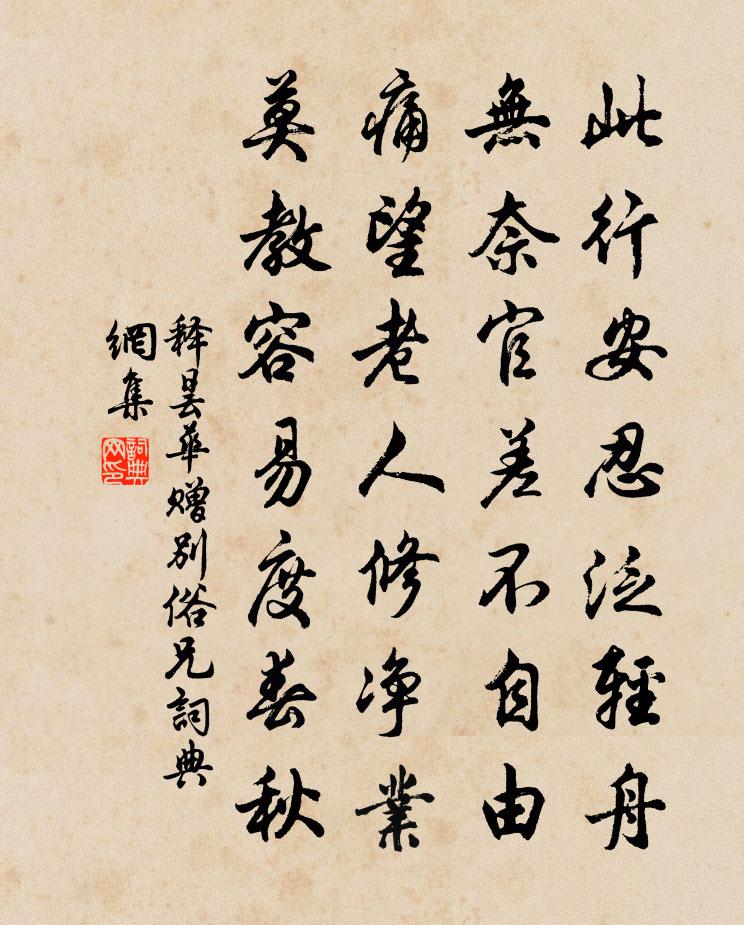 此行安忍泛輕舟
無奈官差不自由
痛望老人修净業
莫教容易度春秋
释曇華赠别俗兄詞典
網集
詞典
网印